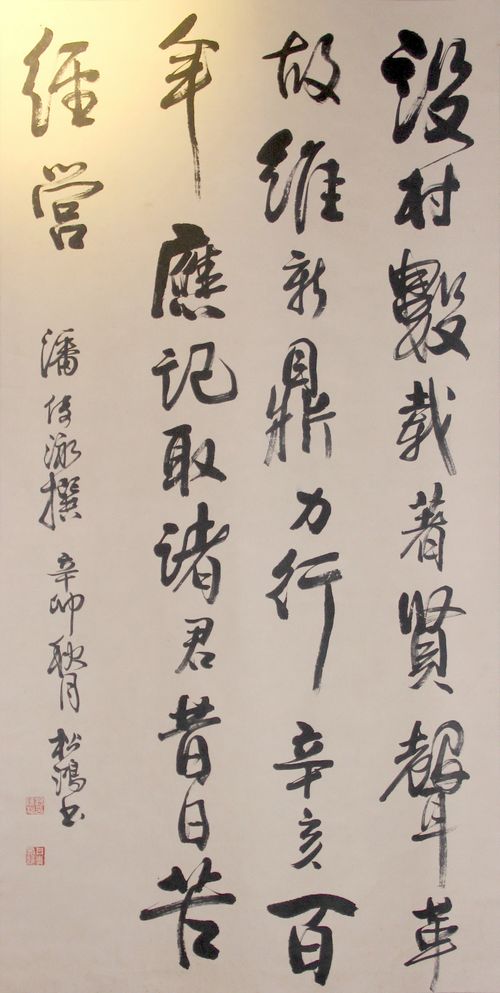 設村數載著賢聲革
故維新鼎力行辛亥百
年應記取諸君昔日苦
經营
潘 撰 辛卯秋月 松鴻書